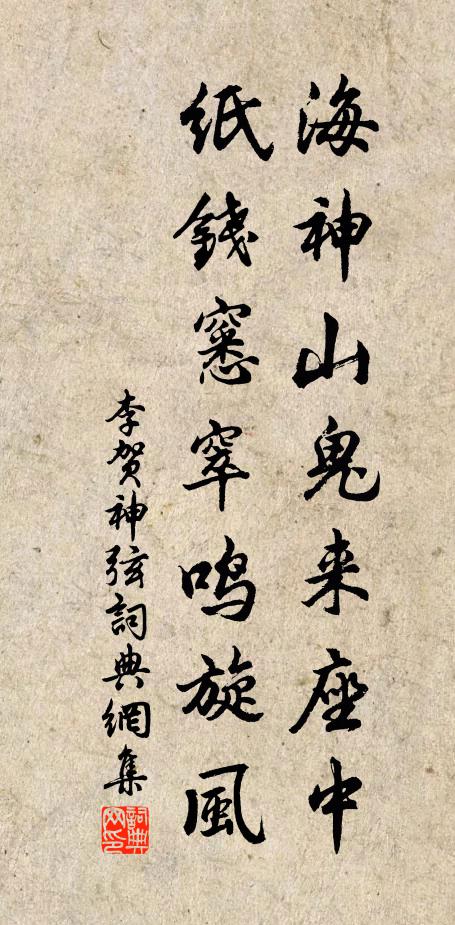 海神山鬼来座中
紙錢窸窣鸣旋風
李贺神弦詞典網集
詞典网印